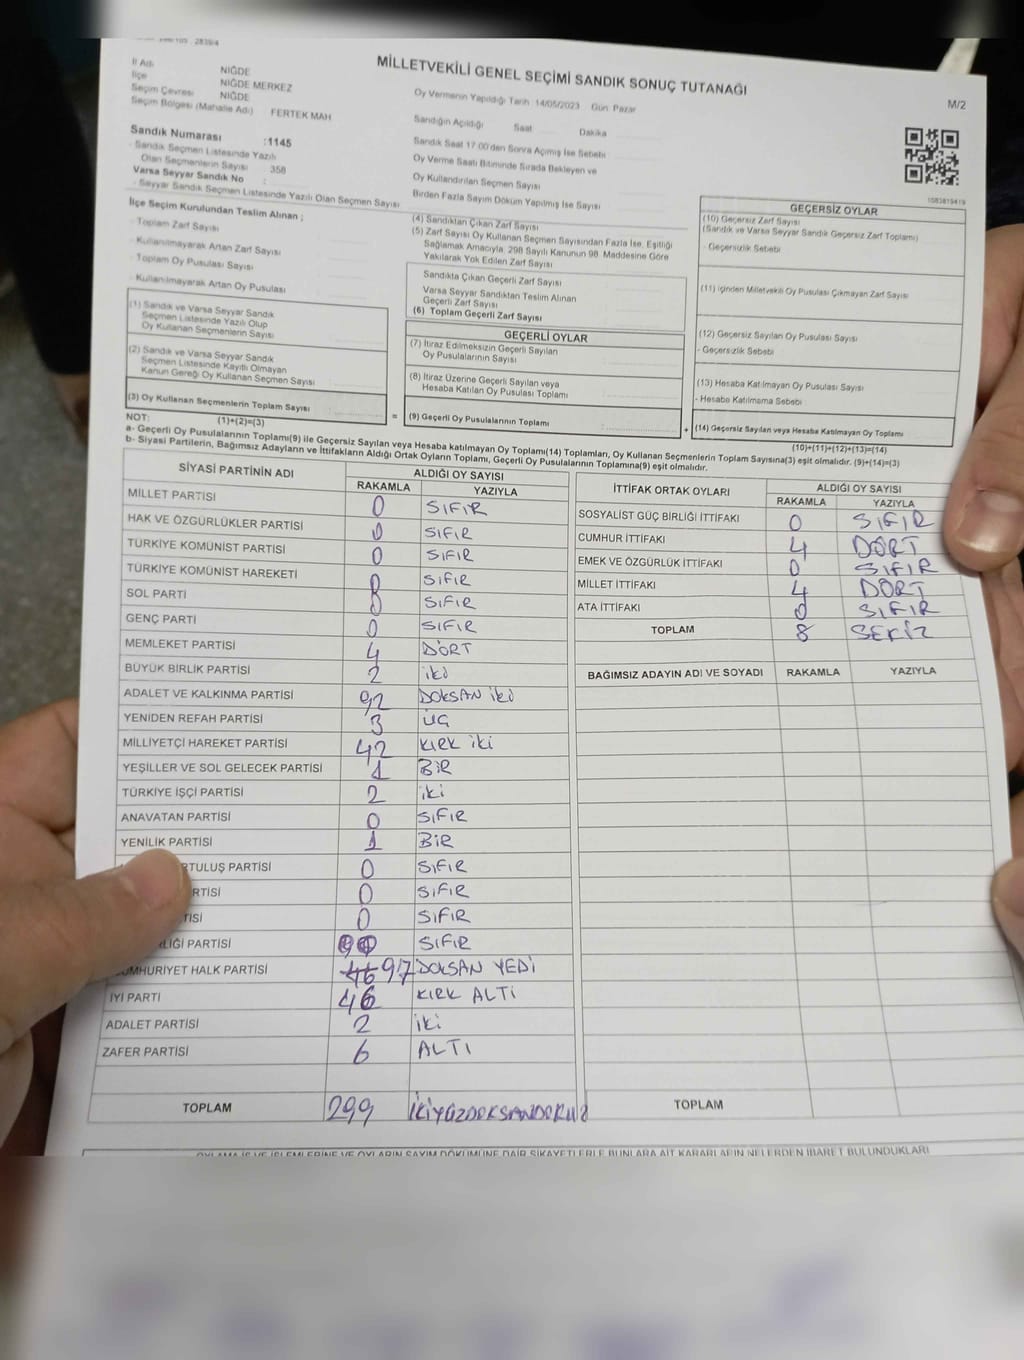 MİLLETVEKİLİ GENEL SEÇİMİ SANDIK SONUÇ TUTANAĞI
M/2
İl Adı NİĞDE
İlçe NİĞDE MERKEZ
Seçim Çevresi NİĞDE
Seçim Bölgesi (Mahalle Adı) FERTEK MAH
Oy Vermenin Yapıldığı Tarih : 14/05/2023 Gün: Pazar
Sandığın Açıldığı Saat Dakika
Sandık Saat 17:00'den Sonra Açılmış İse Sebebi
Oy Verme Saati Bitiminde Sırada Bekleyen ve
Oy Kullandırılan Seçmen Sayısı
Birden Fazla Sayım Döküm Yapılmış İse Sayısı
Sandık Numarası :1145
- Sandık Seçmen Listesinde Yazılı
Olan Seçmenlerin Sayısı : 358
Varsa Seyyar Sandık No :
- Seyyar Sandık Seçmen Listesinde Yazılı Olan Seçmen Sayısı
İlçe Seçim Kurulundan Teslim Alınan ;
- Toplam Zarf Sayısı
- Kullanılmayarak Artan Zarf Sayısı
- Toplam Oy Pusulası Sayısı
- Kullanılmayarak Artan Oy Pusulası
(1) Sandık ve Varsa Seyyar Sandık
Seçmen Listesinde Yazılı Olup
Oy Kullanan Seçmenlerin Sayısı
(2) Sandık ve Varsa Seyyar Sandık
Seçmen Listesinde Kayıtlı Olmayan
Kanun Gereği Oy Kullanan Seçmen Sayısı
(3) Oy Kullanan Seçmenlerin Toplam Sayısı
(1)+(2)=(3)
(4) Sandıktan Çıkan Zarf Sayısı
(5) Zarf Sayısı Oy Kullanan Seçmen Sayısından Fazla İse, Eşitliği
Sağlamak Amacıyla, 298 Sayılı Kanunun 98. Maddesine Göre
Yakılarak Yok Edilen Zarf Sayısı
Sandıkta Çıkan Geçerli Zarf Sayısı
Varsa Seyyar Sandıktan Teslim Alınan
Geçerli Zarf Sayısı
(6) Toplam Geçerli Zarf Sayısı
GEÇERLİ OYLAR
(7) İtiraz Edilmeksizin Geçerli Sayılan
Oy Pusulalarının Sayısı
(8) İtiraz Üzerine Geçerli Sayılan veya
Hesaba Katılan Oy Pusulası Toplamı
= (9) Geçerli Oy Pusulalarının Toplamı
GEÇERSİZ OYLAR
(10) Geçersiz Zarf Sayısı
(Sandık ve Varsa Seyyar Sandık Geçersiz Zarf Toplamı)
- Geçersizlik Sebebi
(11) İçinden Milletvekili Oy Pusulası Çıkmayan Zarf Sayısı
(12) Geçersiz Sayılan Oy Pusulası Sayısı
- Geçersizlik Sebebi
(13) Hesaba Katılmayan Oy Pusulası Sayısı
- Hesaba Katılmama Sebebi
+ (14) Geçersiz Sayılan veya Hesaba Katılmayan Oy Toplamı
(10)+(11)+(12)+(13)=(14)
NOT:
a- Geçerli Oy Pusulalarının Toplamı(9) ile Geçersiz Sayılan veya Hesaba katılmayan Oy Toplamı(14) Toplamları, Oy Kullanan Seçmenlerin Toplam Sayısına(3) eşit olmalıdır. (9)+(14)=(3)
b- Siyasi Partilerin, Bağımsız Adayların ve İttifakların Aldığı Ortak Oyların Toplamı, Geçerli Oy Pusulalarının Toplamına(9) eşit olmalıdır.
SİYASİ PARTİNİN ADI ALDIĞI OY SAYISI
RAKAMLA YAZIYLA
MİLLET PARTİSİ 0 SIFIR
HAK VE ÖZGÜRLÜKLER PARTİSİ 0 SIFIR
TÜRKİYE KOMÜNİST PARTİSİ 0 SIFIR
TÜRKİYE KOMÜNİST HAREKETİ 0 SIFIR
SOL PARTİ 0 SIFIR
GENÇ PARTİ 0 SIFIR
MEMLEKET PARTİSİ 4 DÖRT
BÜYÜK BİRLİK PARTİSİ 2 iki
ADALET VE KALKINMA PARTİSİ 92 DOKSAN iki
YENİDEN REFAH PARTİSİ 3 ÜÇ
MİLLİYETÇİ HAREKET PARTİSİ 42 KIRK iki
YEŞİLLER VE SOL GELECEK PARTİSİ 1 BİR
TÜRKİYE İŞÇİ PARTİSİ 2 iki
ANAVATAN PARTİSİ 0 SIFIR
YENİLİK PARTİSİ 1 BİR
RTULUŞ PARTİSİ 0 SIFIR
RTİSİ 0 SIFIR
TİSİ 0 SIFIR
LİĞİ PARTİSİ 0 SIFIR
CUMHURİYET HALK PARTİSİ 46 97 DOKSAN YEDİ
İYİ PARTİ 46 KIRK ALTI
ADALET PARTİSİ 2 iki
ZAFER PARTİSİ 6 ALTI
TOPLAM 299 İKİYÜZDOKSANDOKUZ
İTTİFAK ORTAK OYLARI ALDIĞI OY SAYISI
RAKAMLA YAZIYLA
SOSYALİST GÜÇ BİRLİĞİ İTTİFAKI 0 SIFIR
CUMHUR İTTİFAKI 4 DÖRT
EMEK VE ÖZGÜRLÜK İTTİFAKI 0 SIFIR
MİLLET İTTİFAKI 4 DÖRT
ATA İTTİFAKI 0 SIFIR
TOPLAM 8 SEKİZ
BAĞIMSIZ ADAYIN ADI VE SOYADI RAKAMLA YAZIYLA
TOPLAM